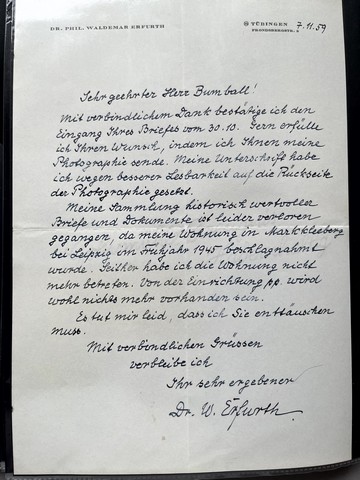 DR. PHIL. WALDEMAR ERFURTH
TÜBINGEN
7.11.59
Sehr geehrter Herr Bumball!
Mit verbindlichem Dank bestätige ich den
Eingang Ihres Briefes vom 30.10. Gern erfülle
ich Ihren Wunsch, indem ich Ihnen meine
Photographie sende. Meine Unterschrift habe
ich wegen besserer Lesbarkeit auf die Rückseite
der Photographie gesetzt.
Meine Sammlung historisch wertvoller
Briefe und Dokumente ist leider verloren
gegangen, da meine Wohnung in Markkleeberg
bei Leipzig im Frühjahr 1945 beschlagnahmt
wurde. Seither habe ich die Wohnung nicht
mehr betreten. Von der Einrichtung pp. wird
wohl nichts mehr vorhanden sein.
Es tut mir leid, dass ich Sie enttäuschen
muss.
Mit verbindlichen Grüssen
verbleibe ich
Ihr sehr ergebener
Dr. W. Erfurth